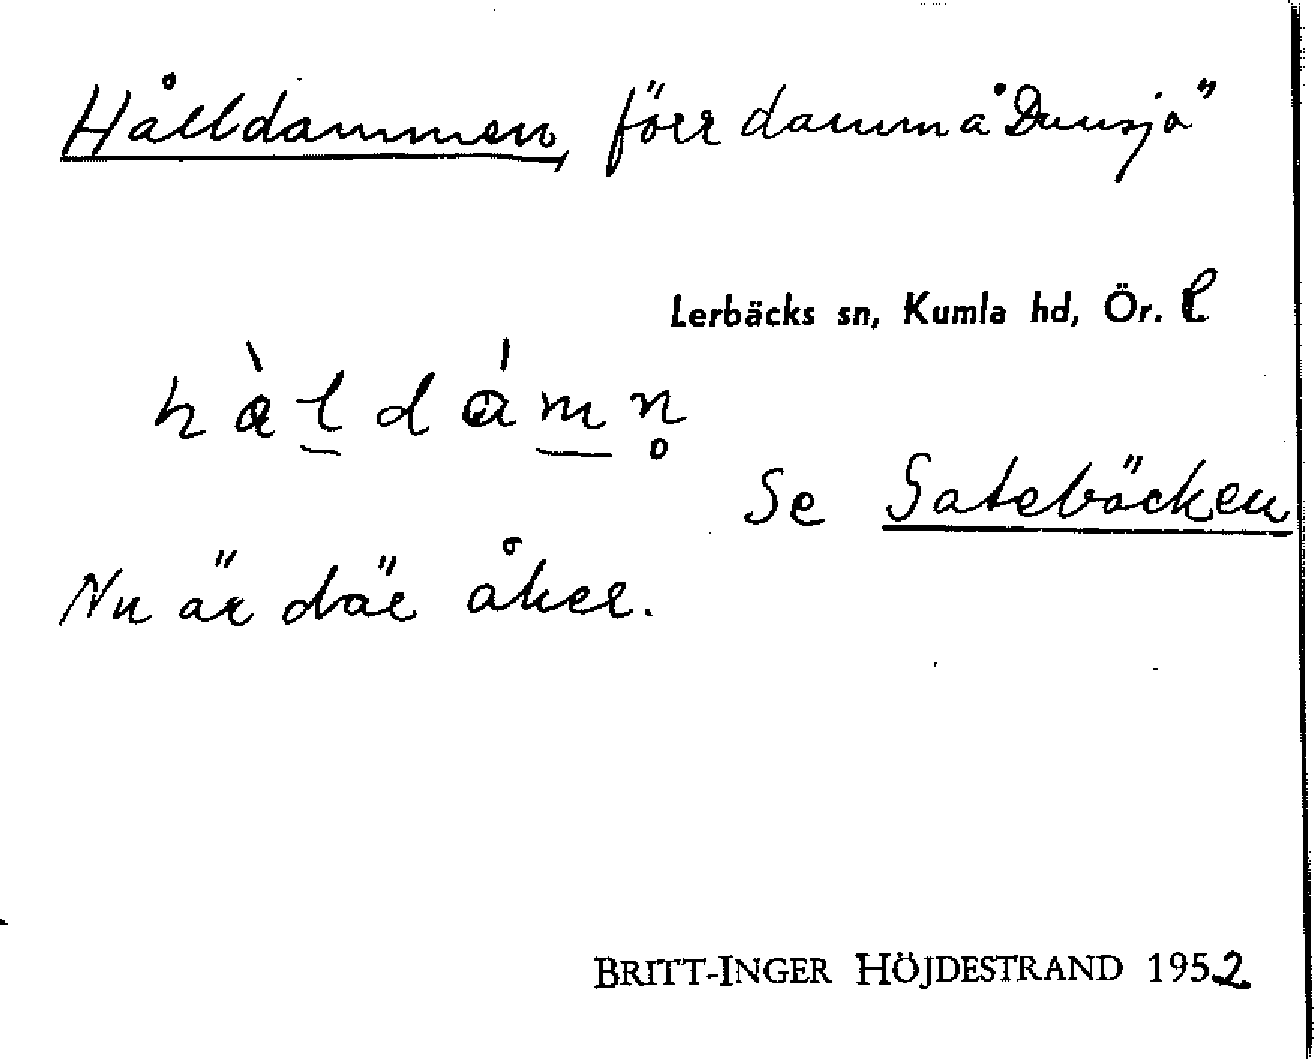 Hålldammen, förr damm å Dunsjö
Lerbäcks sn, Kumla hd, Ör. l
hàldámn̥
Se Gatebäcken
Nu är där åker.
BRITT-INGER HÖJDESTRAND 1952